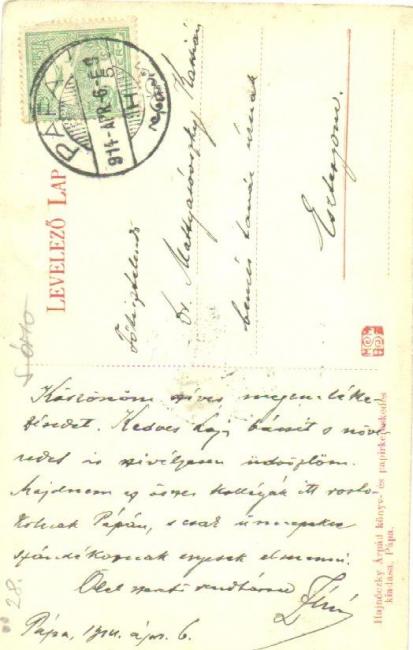 PÁPA
914 APR. 6. E 9
LEVELEZŐ LAP
Főtisztelendő
Dr. Mattyasovszky Kasszián
bencés tanár úrnak
Esztergom.
Köszönöm szíves megemléke-
zésedet. Kedves
is szívélyesen üdvözlöm.
Majdnem az összes kollégák itt
Pápán, s csak ünnepekre
szándékoznak egyesek elmenni.
Ölel szerető rendtársad
Pápa, 1914. ápr. 6.
28.
Hajnóczky Árpád könyv- és papirkereskedés
kiadása, Pápa.